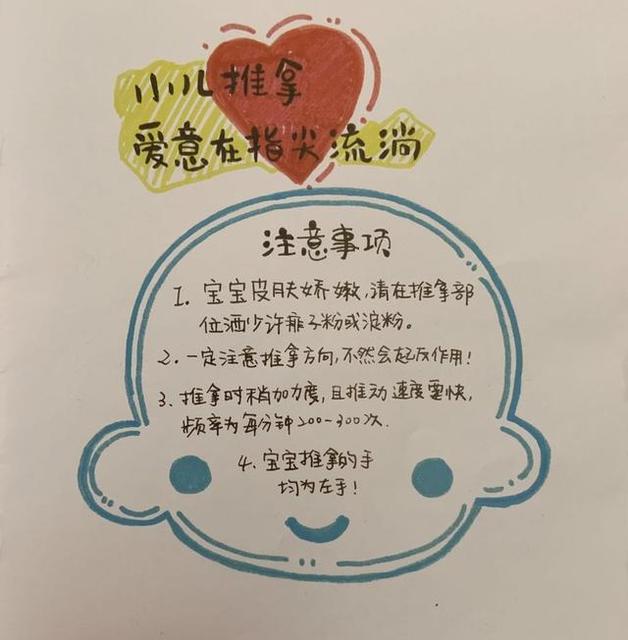 小儿推拿
爱意在指尖流淌
注意事项
1. 宝宝皮肤娇嫩,请在推拿部
位洒少许痱子粉或淀粉。
2. 一定注意推拿方向,不然会起反作用!
3. 推拿时稍加力度,且推动速度要快,
频率为每分钟200-300次.
4. 宝宝推拿的手
均为左手!